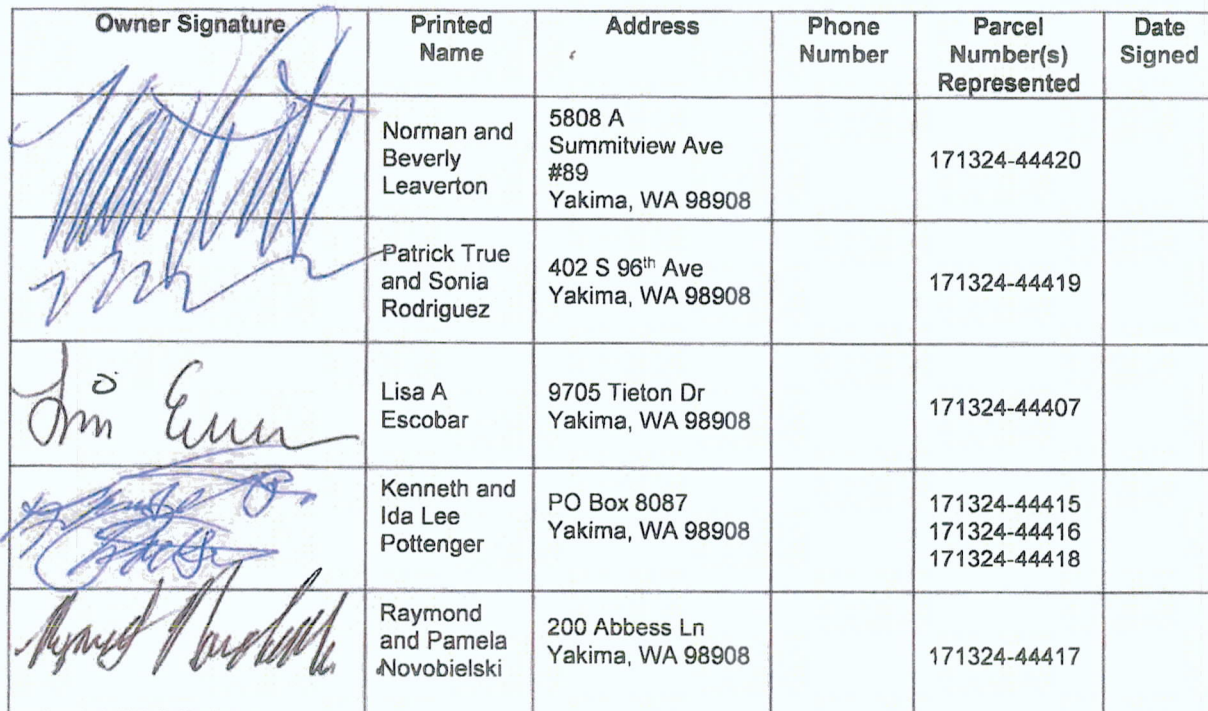 Owner Signature
Printed
Name
Address
Phone
Number
Parcel
Number(s)
Represented
Date
Signed
Norman and
Beverly
Leaverton
5808 A
Summitview Ave
#89
Yakima, WA 98908
171324-44420
Patrick True
and Sonia
Rodriguez
402 S 96th Ave
Yakima, WA 98908
171324-44419
Lisa A
Escobar
9705 Tieton Dr
Yakima, WA 98908
171324-44407
Kenneth and
Ida Lee
Pottenger
PO Box 8087
Yakima, WA 98908
171324-44415
171324-44416
171324-44418
Raymond
and Pamela
Novobielski
200 Abbess Ln
Yakima, WA 98908
171324-44417